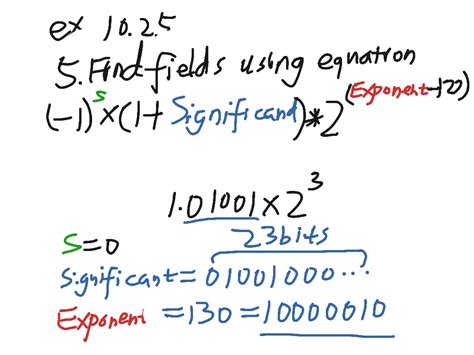 ex 10.2.5
5. Find fields using equation
(-1)^s × (1 + Significand) * 2^(Exponent-120)
1.01001 × 2^3
S=0
23bits
Significant = 01001000...
Exponent = 130 = 10000010